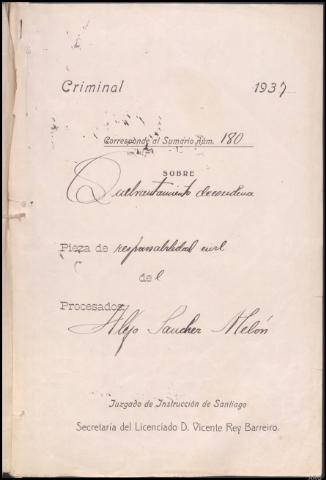 Criminal 1937
Corresponde al Sumario núm. 180
SOBRE
Quebrantamiento decondena
Pieza de responsabilidad civil
del
Procesados
Alejo Sanchez Melón
Juzgado de Instrucción de Santiago
Secretaría del Licenciado D. Vicente Rey Barreiro.